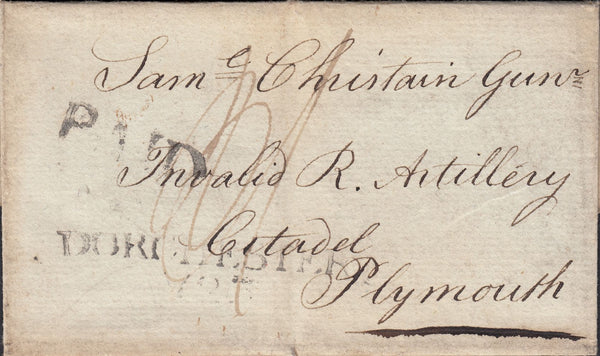 Sam.e Christain Gunr
PAID
Invalid R. Artillery
Citadel
DORCHESTER
Plymouth